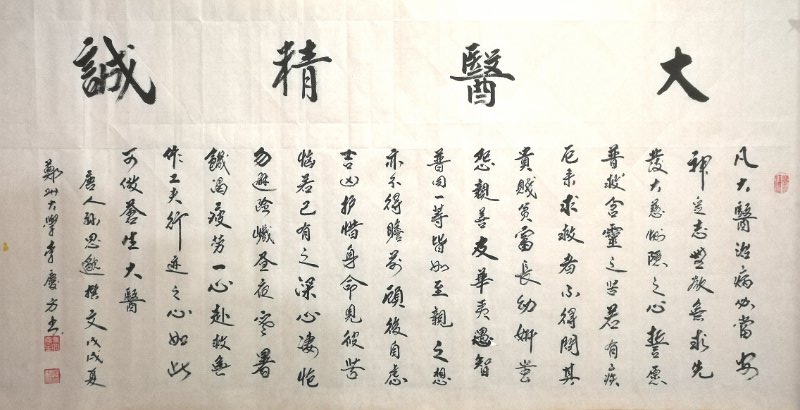 大醫精誠
凡大醫治病必當安
神定志無欲無求先
發大慈惻隱之心誓願
普救含靈之苦若有疾
厄來求救者不得問其
貴賤貧富長幼妍蚩
怨親善友華夷愚智
普同一等皆如至親之想
亦不得瞻前顧後自慮
吉凶護惜身命見彼苦
惱若己有之深心凄愴
勿避險巇晝夜寒暑
饑渴疲勞一心赴救無
作工夫行迹之心如此
可做蒼生大醫
唐人孫思邈撰文戊戌夏
鄭州大學李慶方書